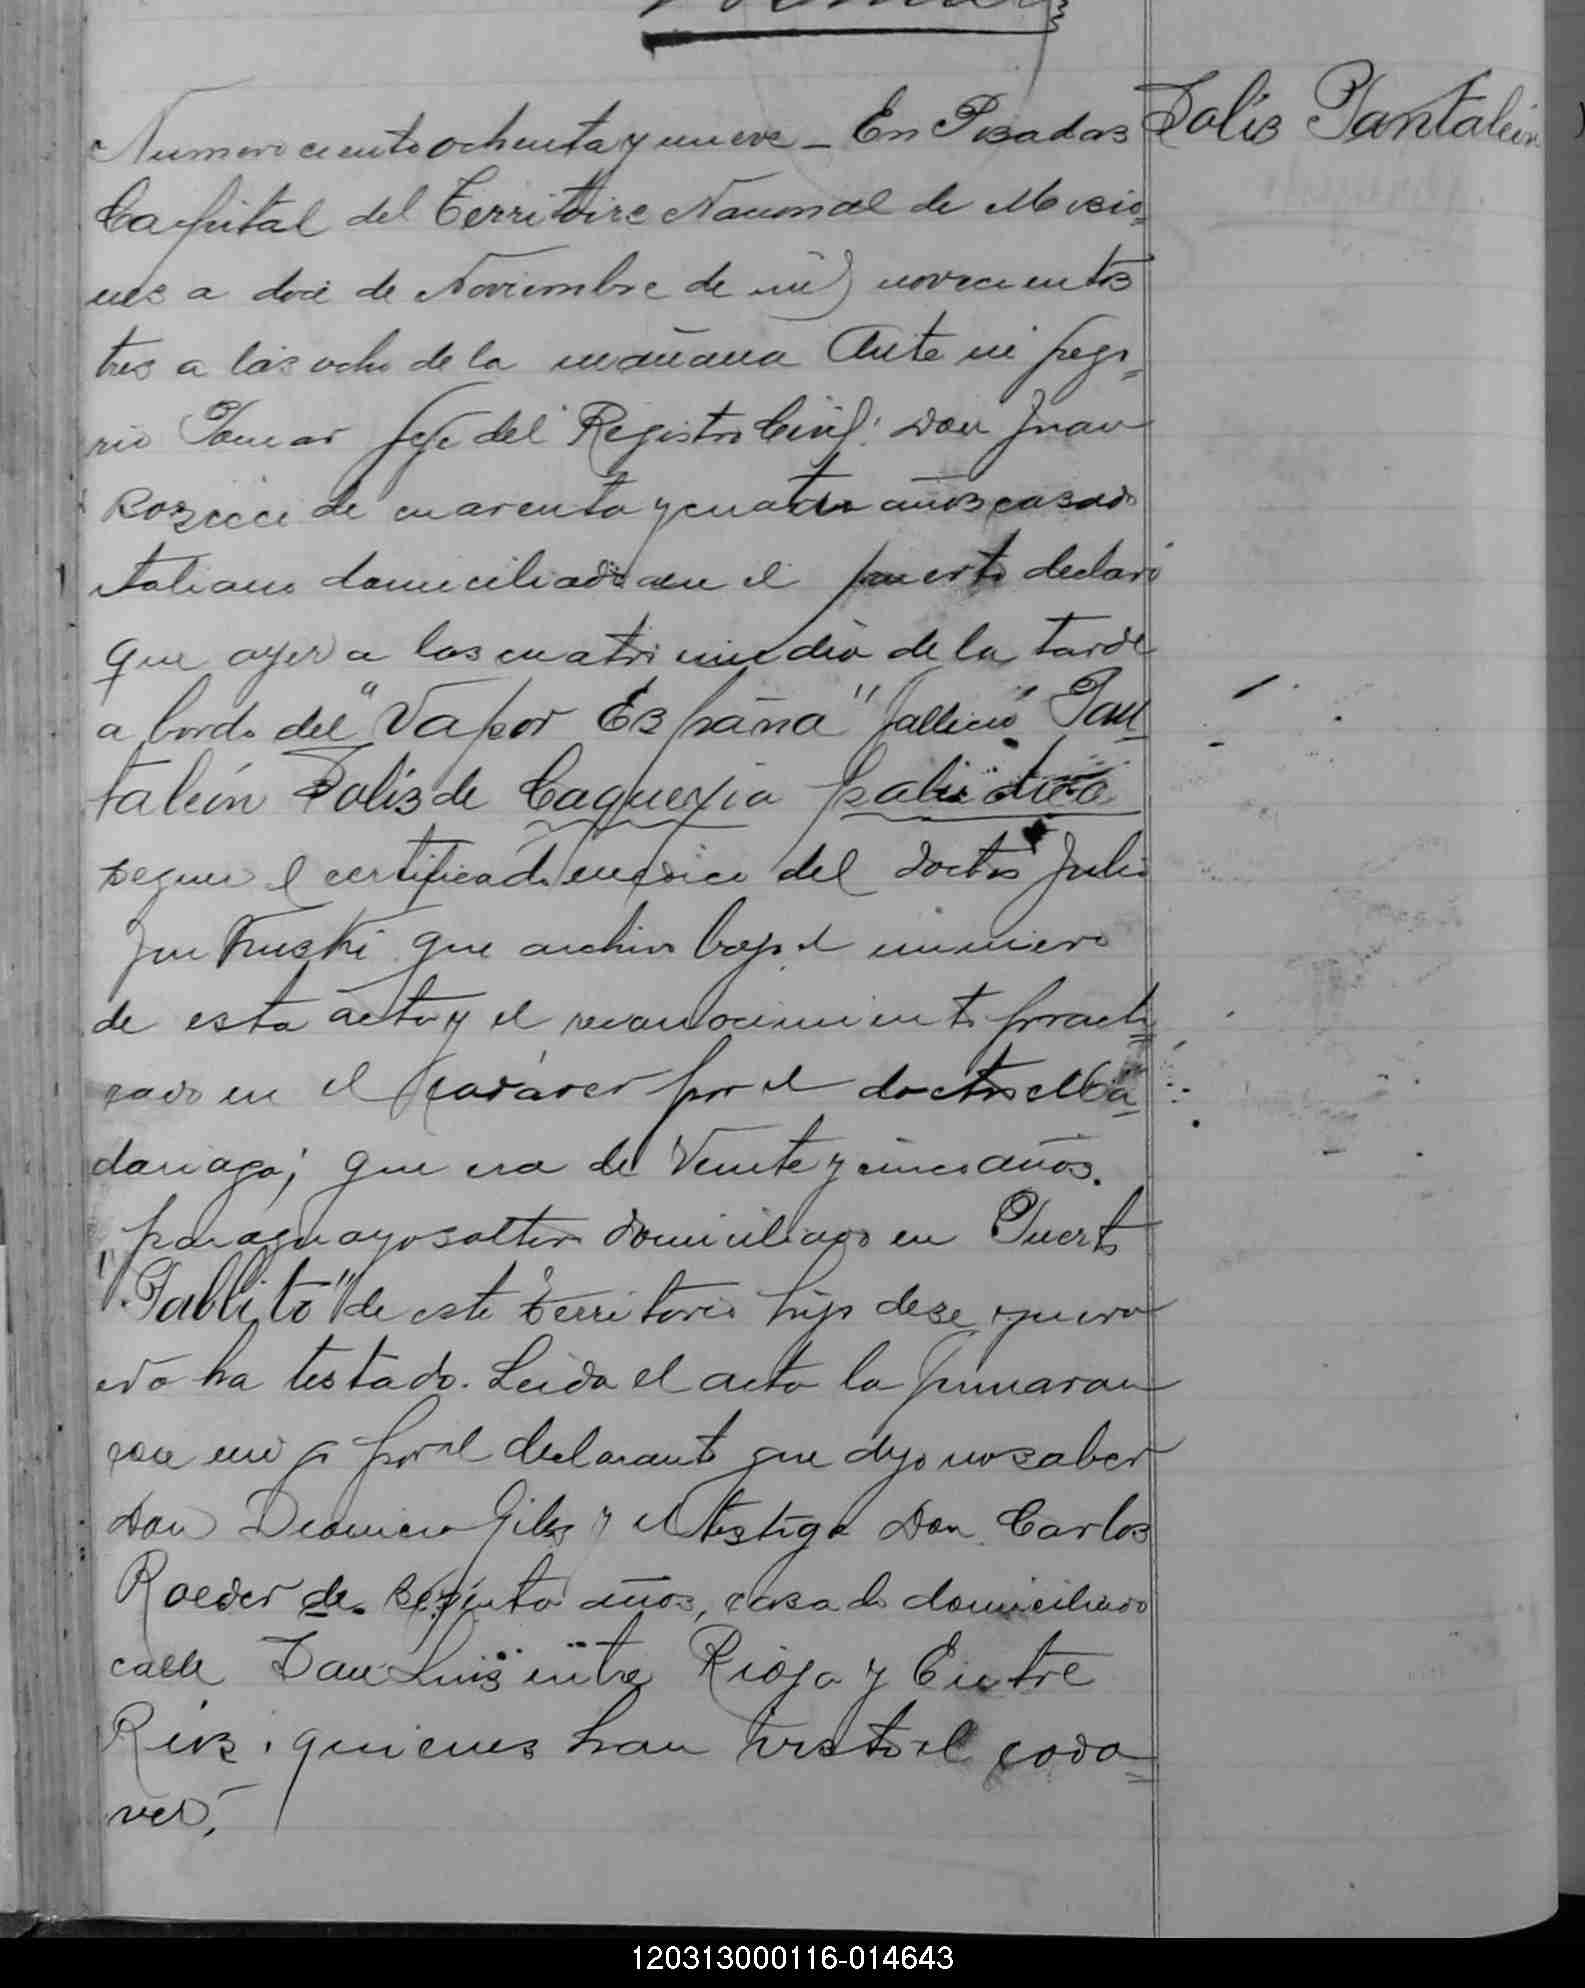 Solis Pantaleón
Numero ciento ochenta y nueve _ En Posadas
Capital del Territorio Nacional de Misio=
nes a doce de Noviembre de mil novecientos
tres a las ocho de la mañana Ante mi
Jefe del Registro Civil: Don Juan
de cuarenta y cuatro años casado
italiano domiciliado en el puerto declaró
que ayer a las cuatro y media de la tarde
a bordo del "Vapor España" falleció Pan=
taleón Solis de Caquexia paludica
segun el certificado medico del doctor Julio
que archivo bajo el numero
de esta acta y el reconocimiento practi=
cado en el cadáver por el doctor Ma=
dariaga; que era de veinte y cinco años.
paraguayo soltero domiciliado en Puerto
"Pablito" de este territorio hijo de
no ha testado. Leida el acta la firmaron
con migo por el declarante que dijo no saber
Don y el testigo Don Carlos
Roeder de años, casado domiciliado
calle San Luis entre Rioja y Entre
Rios. quienes han visto el cada=
ver.
120313000116-014643